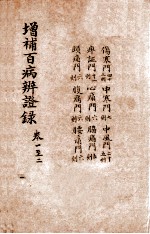 傷寒門 中寒門 中風門
痺証門 心痛門 脇痛門
頭痛門 腹痛門 腰痛門
增補百病辨證錄 卷一至二
一